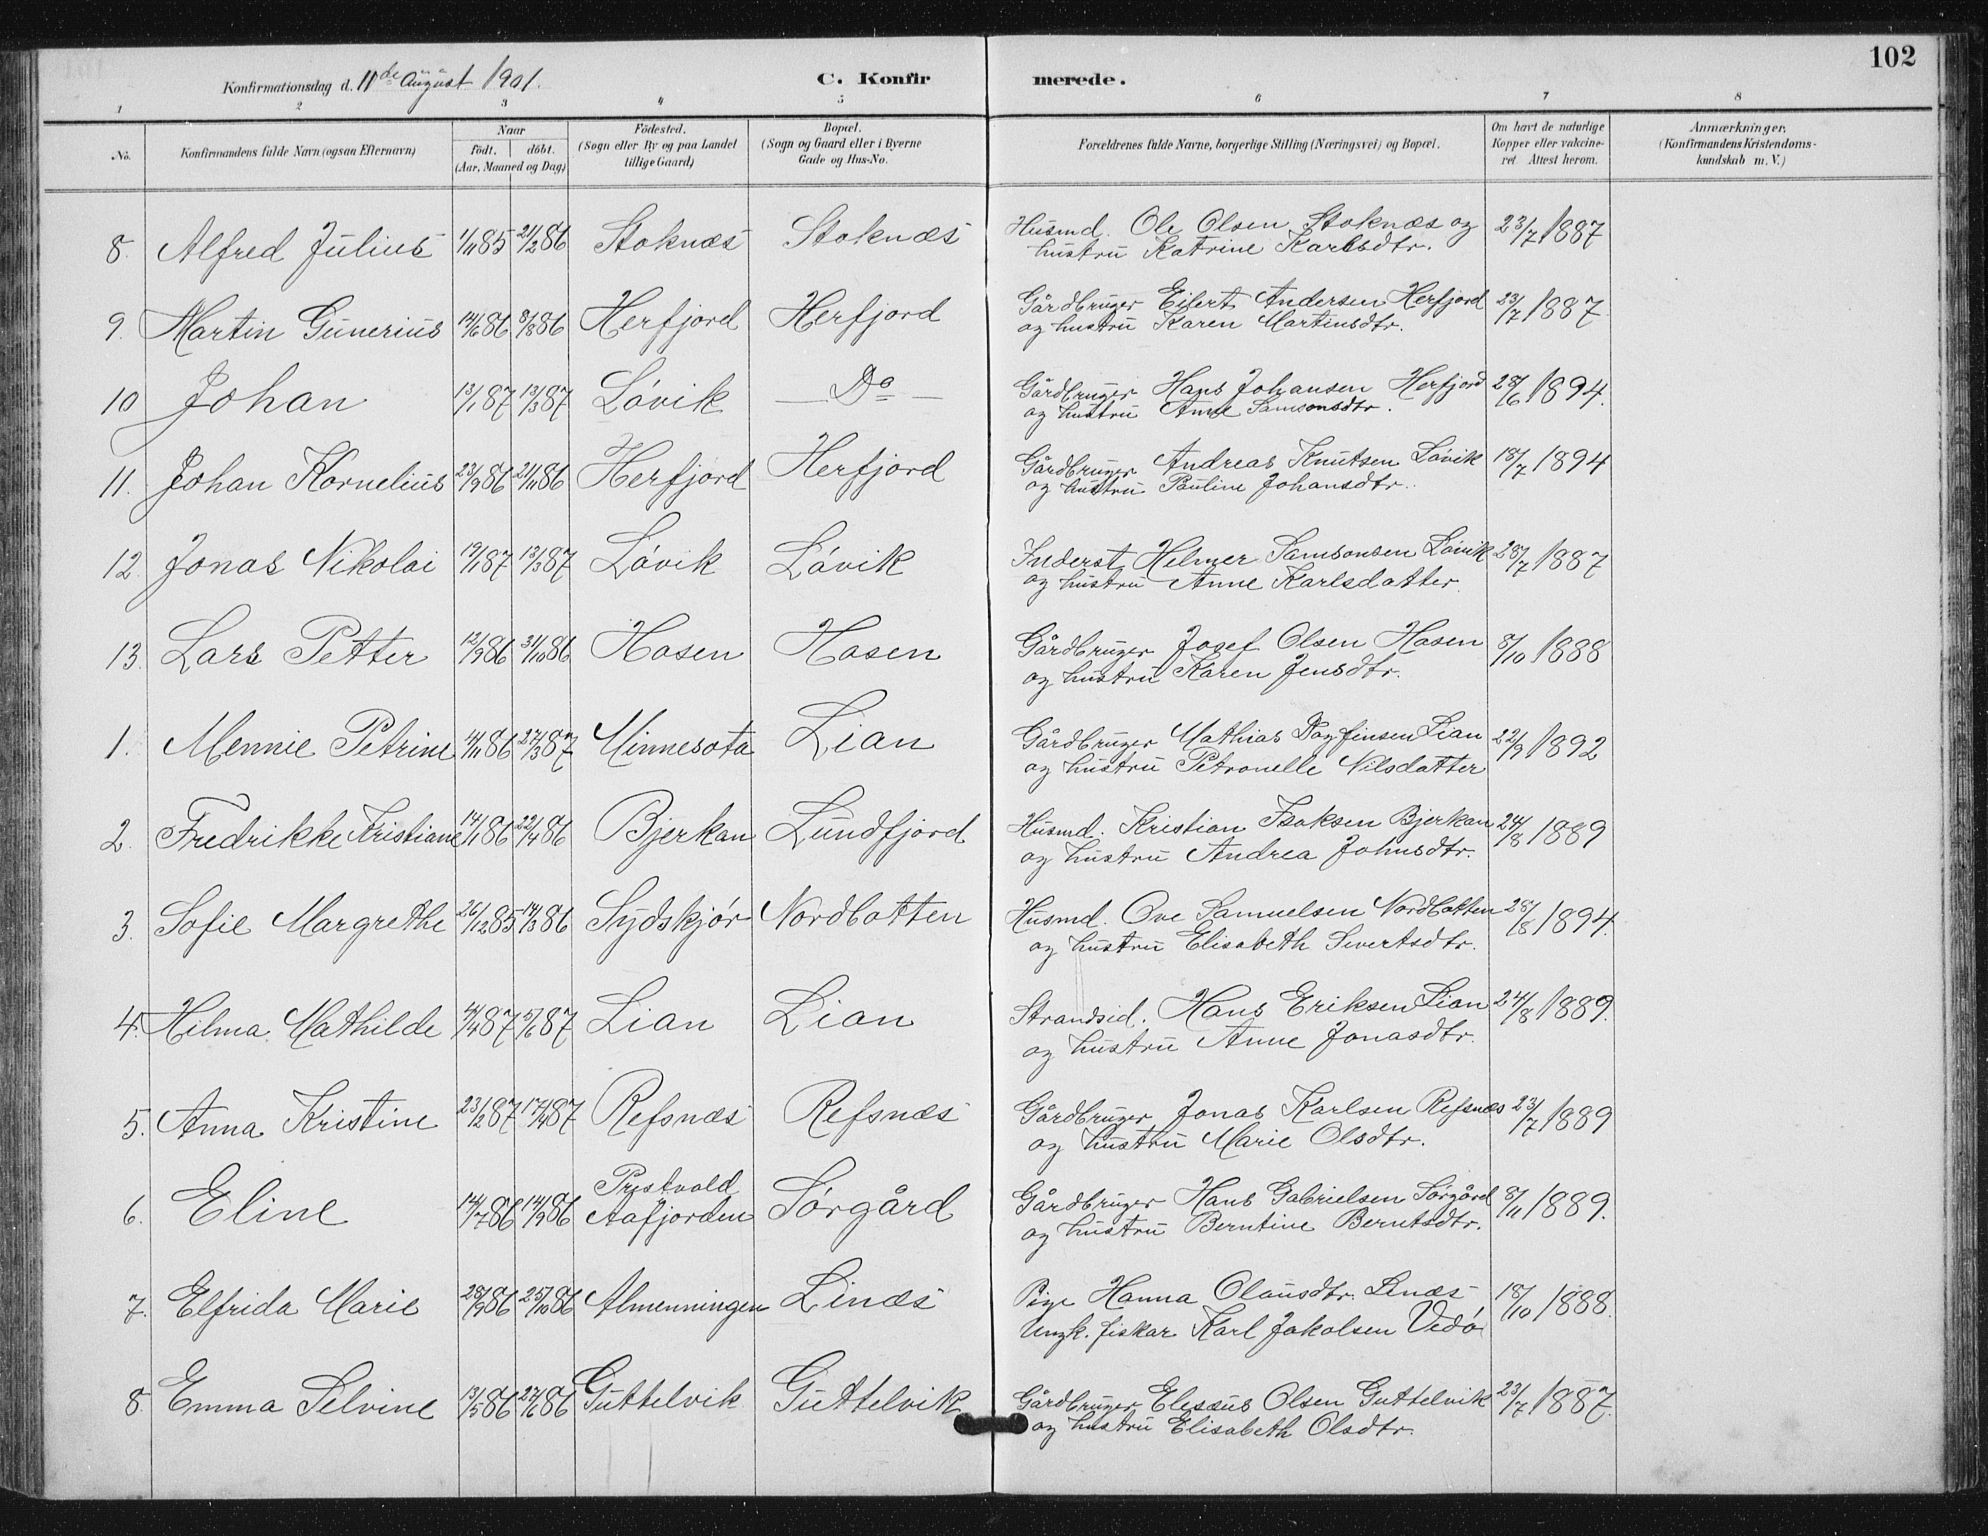 102
Konfirmationsdag d. 11de August 1901.
C. Konfirmerede.
1 2 3 4 5 6 7 8
No.
Konfirmandens fulde Navn (ogsaa Efternavn)
Naar
födt. döbt.
(Aar, Maaned og Dag)
Födested.
(Sogn eller By og paa Landet
tillige Gaard)
Bopæl.
(Sogn og Gaard eller i Byerne
Gade og Hus-No.
Forældrenes fulde Navne, borgerlige Stilling (Næringsvei) og Bopæl.
Om havt de naturlige
Kopper eller vakcine-
ret Attest herom.
Anmærkninger.
(Konfirmandens Kristendoms-
kundskab m. V.)
8. Alfred Julius 1/11 85 21/2 86 Stoknæs Stoknæs Husmd. Ole Olsen Stoknæs og 23/7 1887
hustru Katrine Karlsdtr.
9. Martin Gunerius 14/6 86 8/8 86 Herfjord Herfjord Gårdbruger Eilert Andersen Herfjord 23/7 1887
og hustru Karen Martinsdtr.
10 Johan 13/1 87 13/3 87 Lövik Do Gårdbruger Hans Johansen Herfjord 28/6 1894.
og hustru Anne Samsonsdtr.
11. Johan Kornelius 23/9 86 21/11 86 Herfjord Herfjord Gårdbruger Andreas Knutsen Lövik 18/7 1894
og hustru Pauline Johansdtr.
12. Jonas Nikolai 19/1 87 13/3 87 Lövik Lövik Inderst Helmer Samsonsen Lövik 28/7 1887
og hustru Anne Karlsdatter.
13. Lars Petter 12/9 86 31/10 86 Hosen Hosen Gårdbruger Josef Olsen Hosen 8/10 1888
og hustru Karen Jensdtr.
1. Mennie Petrine 14/11 86 27/3 87 Minnesota Lian Gårdbruger Mathias Dagfinsen Lian 22/9 1892
og hustru Petronelle Nilsdatter
2. Fredrikke Kristiane 14/1 86 22/4 86 Bjerkan Lundfjord Husmd. Kristian Isaksen Bjerkan 24/8 1889
og hustru Andrea Johnsdtr.
3. Sofie Margrethe 26/12 85 14/3 86 Sydskjör Nordbotten Husmd. Ove Samuelsen Nordbotten 28/8 1894.
og hustru Elisabeth Sivertsdtr.
4. Hilma Mathilde 4/4 87 5/6 87 Lian Lian Strandsid. Hans Eriksen Lian 24/8 1889.
og hustru Anne Jonasdtr.
5. Anna Kristine 23/2 87 17/4 87 Refsnæs Refsnæs Gårdbruger Jonas Karlsen Refsnæs 23/7 1889
og hustru Marie Olsdtr.
6. Eline 14/7 86 14/9 86 Prestvold
Aafjorden Sörgård Gårdbruger Hans Gabrielsen Sörgård 8/11 1889.
og hustru Berntine Berntsdtr.
7. Elfrida Marie 28/9 86 25/10 86 Almenningen Linæs Pige Hanna Olausdtr. Linæs 18/10 1888.
Ungk. fisker Karl Jakobsen Vedö
8. Emma Selvine 13/5 86 27/6 86 Guttelvik Guttelvik Gårdbruger Elesæus Olsen Guttelvik 23/7 1887.
og hustru Elisabeth Olsdtr.